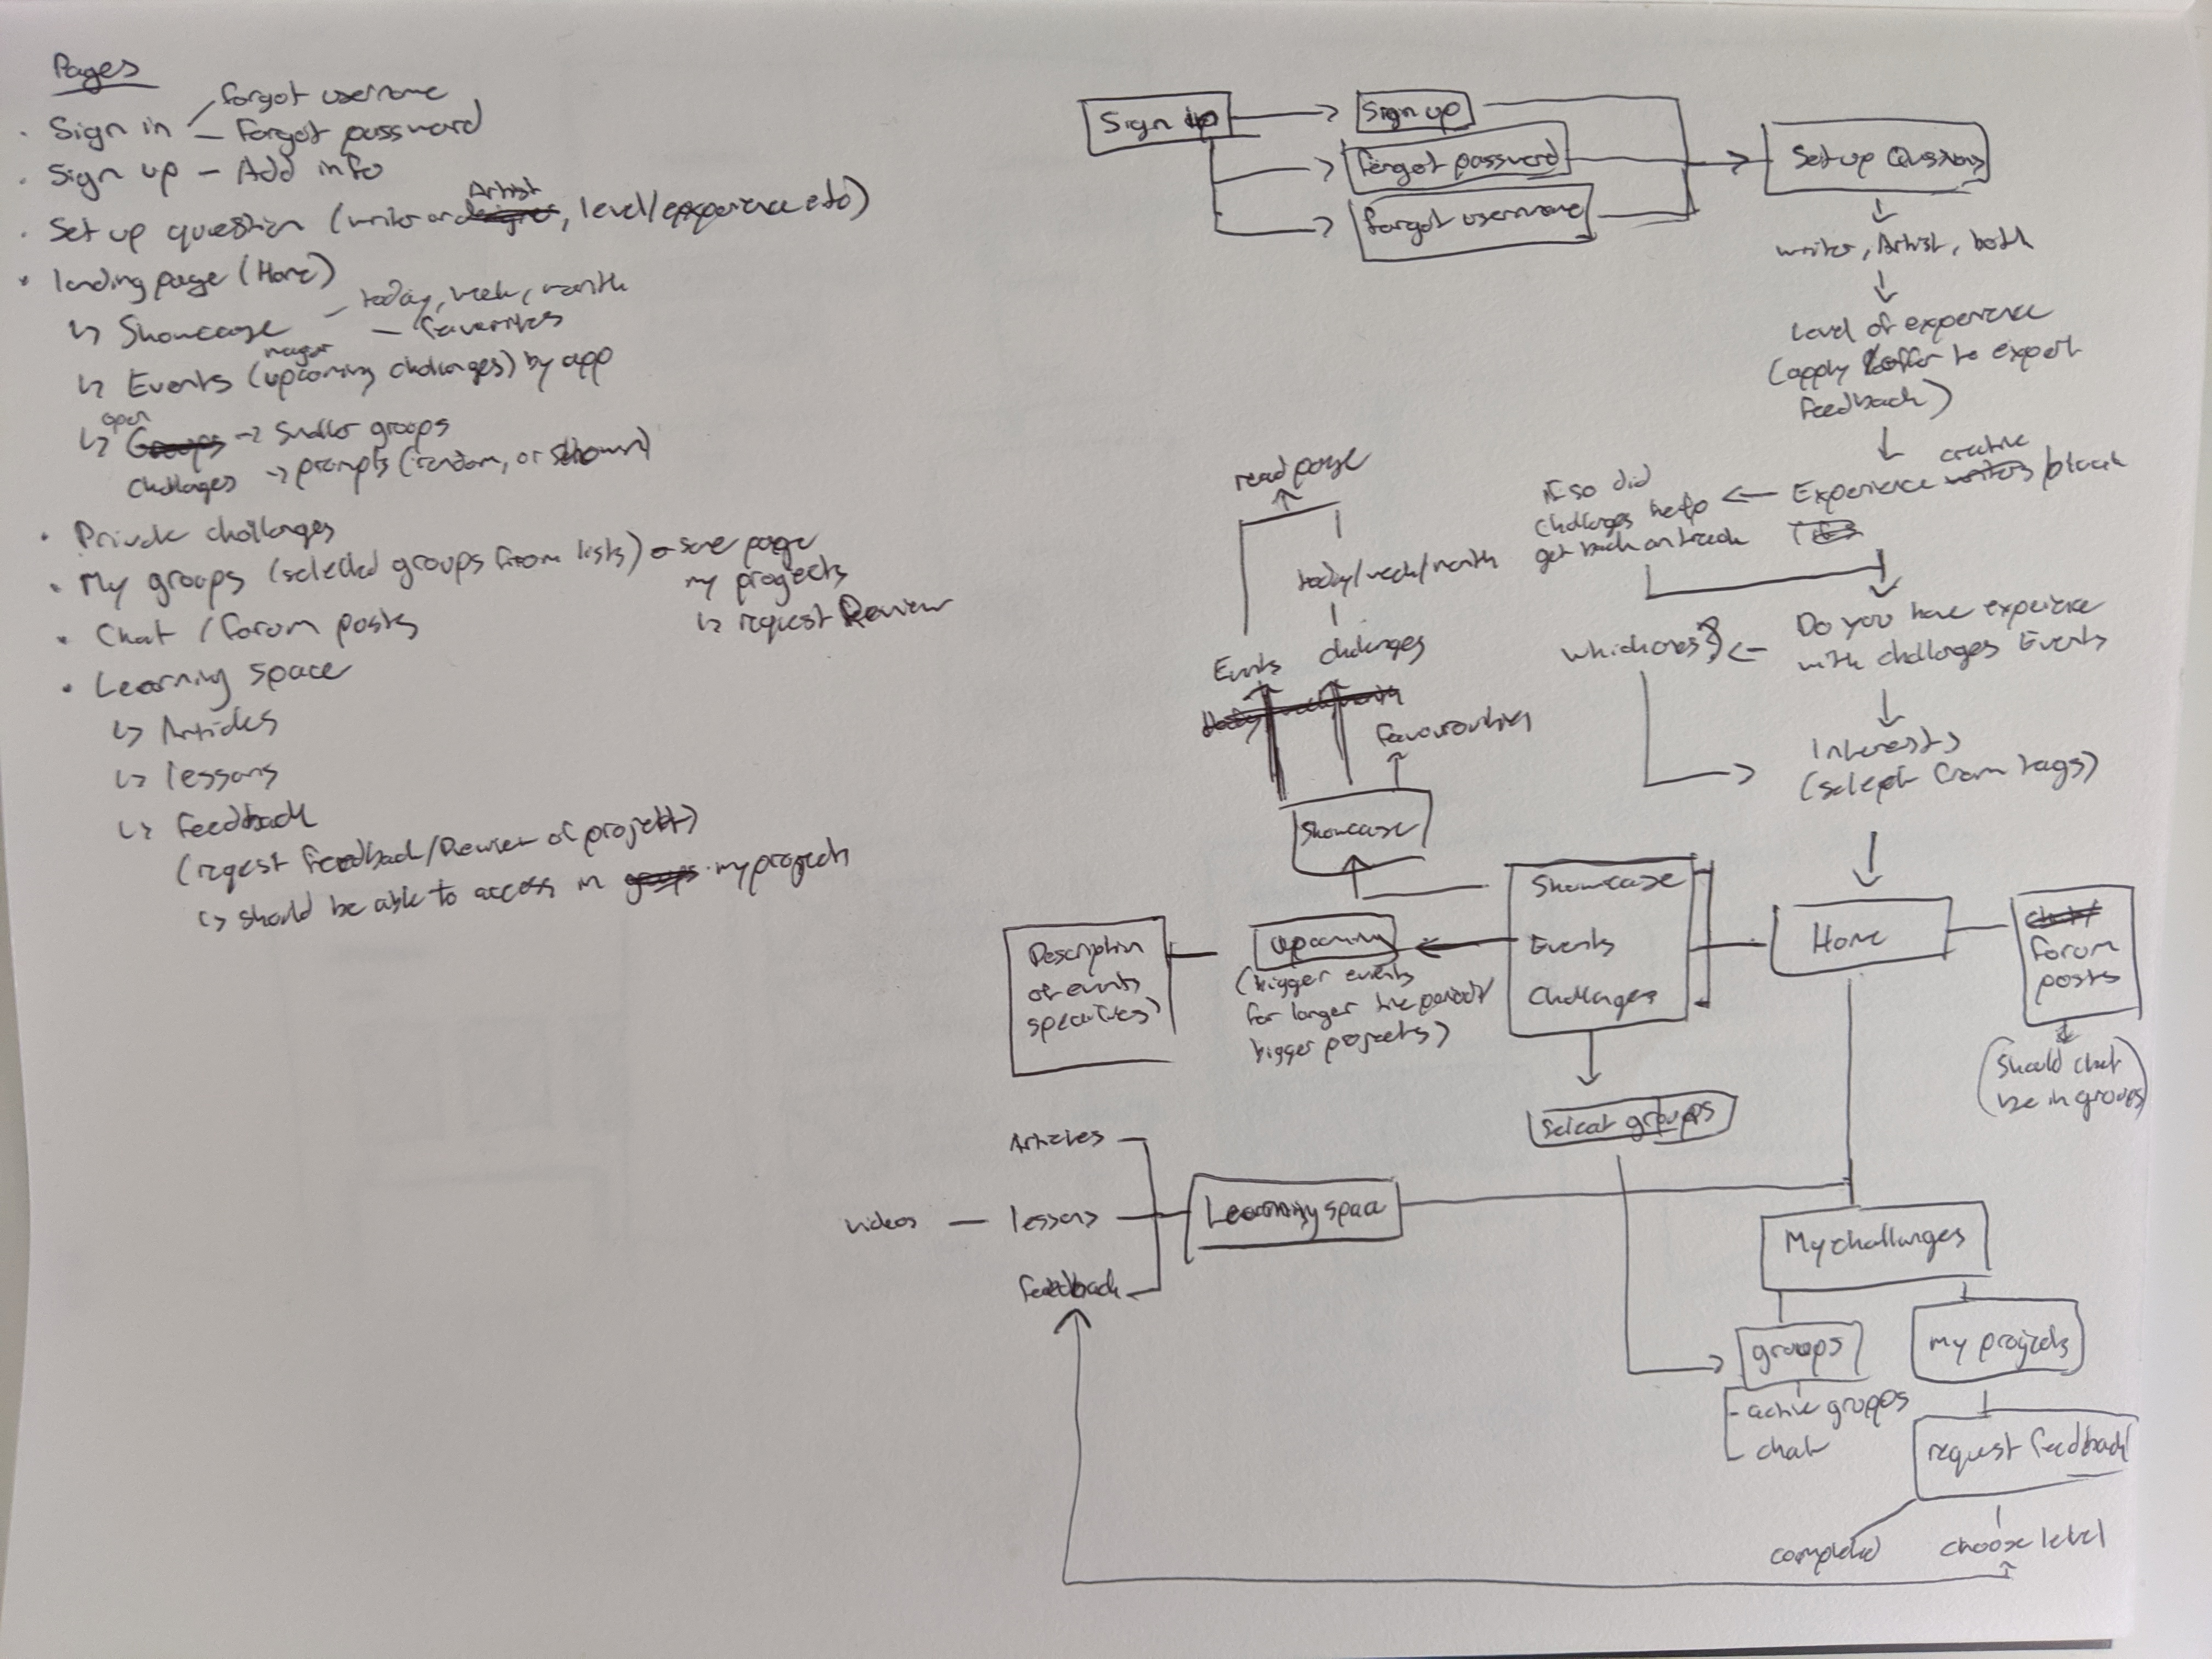 Pages
forgot username
Sign in
Forgot password
Sign up - Add info
Artist
Set up question (writer or, level/experience etc)
landing page (Home)
today, week, month
↳ Showcase
- favorites
major
↳ Events (upcoming challenges) by app
open
↳ Groups → Smaller groups
challages → prompts (random, or shown)
Private challenges
My groups (selected groups from lists) or same page
my progects
↳ request Review
Chat / forum posts
Learning space
↳ Articles
↳ lessons
↳ feedback
(reqest feedback/Review of projekt)
↳ should be able to access in my projects
Sign
Sign up
forgot password
forgot username
Set up Questions
writer, Artist, both
Level of experience
(apply offer to expert
feedback)
creative
Experience writers/block
If so did
challages help
get back on track
Do you have experience
with challages Events
which ones?
Interests
(select from tags)
read page
today/week/month
Events
challenges
favourites
Showcase
Showcase
Events
Challages
Home
chat/
forum
posts
(should chat
be in groups)
Upcoming
(bigger events
for longer time period/
bigger projects)
Description
of events
specifices)
select groups
Articles
videos - lessons
feedback
Learning space
My challanges
groups
- active groups
chat
my projects
request feedback
completed
choose level